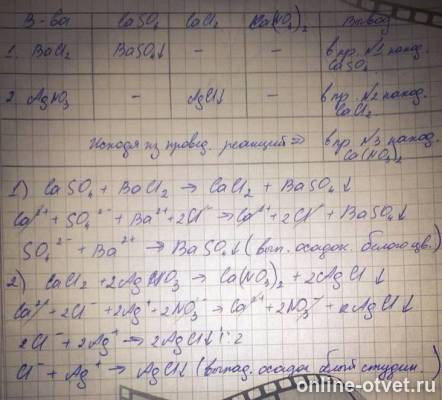 В-ва CaSO₄ CaCl₂ Ca(NO₃)₂ Вывод
1. BaCl₂ BaSO₄↓ – – в пр. №1 наход. CaSO₄
2. AgNO₃ – AgCl↓ – в пр. №2 наход. CaCl₂
Исходя из провед. реакций ⇒ в пр. №3 наход. Ca(NO₃)₂
1) CaSO₄ + BaCl₂ → CaCl₂ + BaSO₄↓
Ca²⁺ + SO₄²⁻ + Ba²⁺ + 2Cl⁻ → Ca²⁺ + 2Cl⁻ + BaSO₄↓
SO₄²⁻ + Ba²⁺ → BaSO₄↓ (вып. осадок белого цв.)
2) CaCl₂ + 2AgNO₃ → Ca(NO₃)₂ + 2AgCl↓
Ca²⁺ + 2Cl⁻ + 2Ag⁺ + 2NO₃⁻ → Ca²⁺ + 2NO₃⁻ + 2AgCl↓
2Cl⁻ + 2Ag⁺ → 2AgCl↓ |:2
Cl⁻ + Ag⁺ → AgCl↓ (выпад. осадок белый студен.)
online-otvet.ru